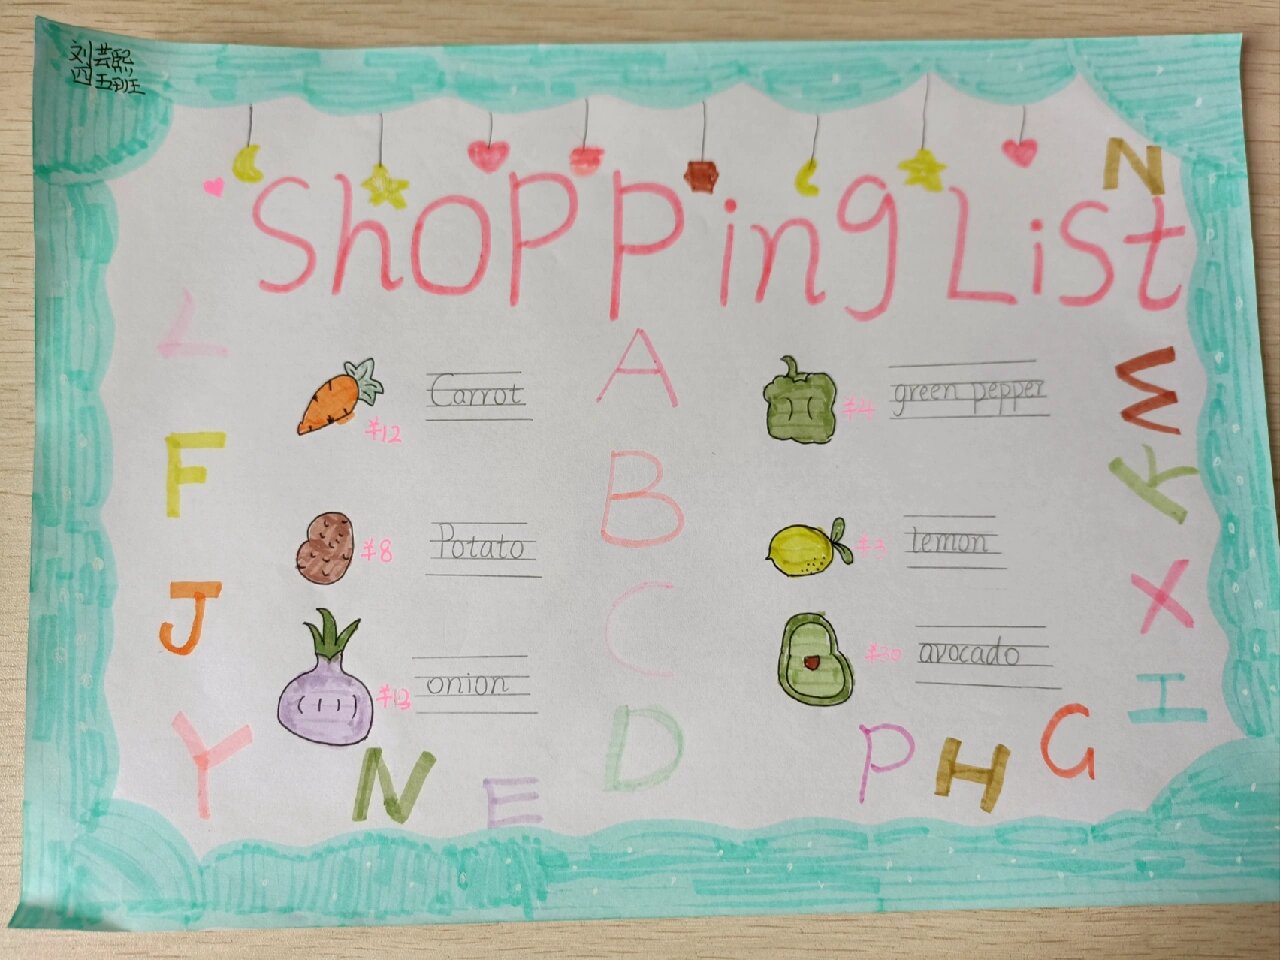 刘芸熙
四五班
Shopping List
N
L
Carrot
¥12
A
¥4
green pepper
W
F
B
K
Potato
¥8
¥3
lemon
J
C
X
onion
¥13
¥30
avocado
H
Y
N
E
D
P
H
G